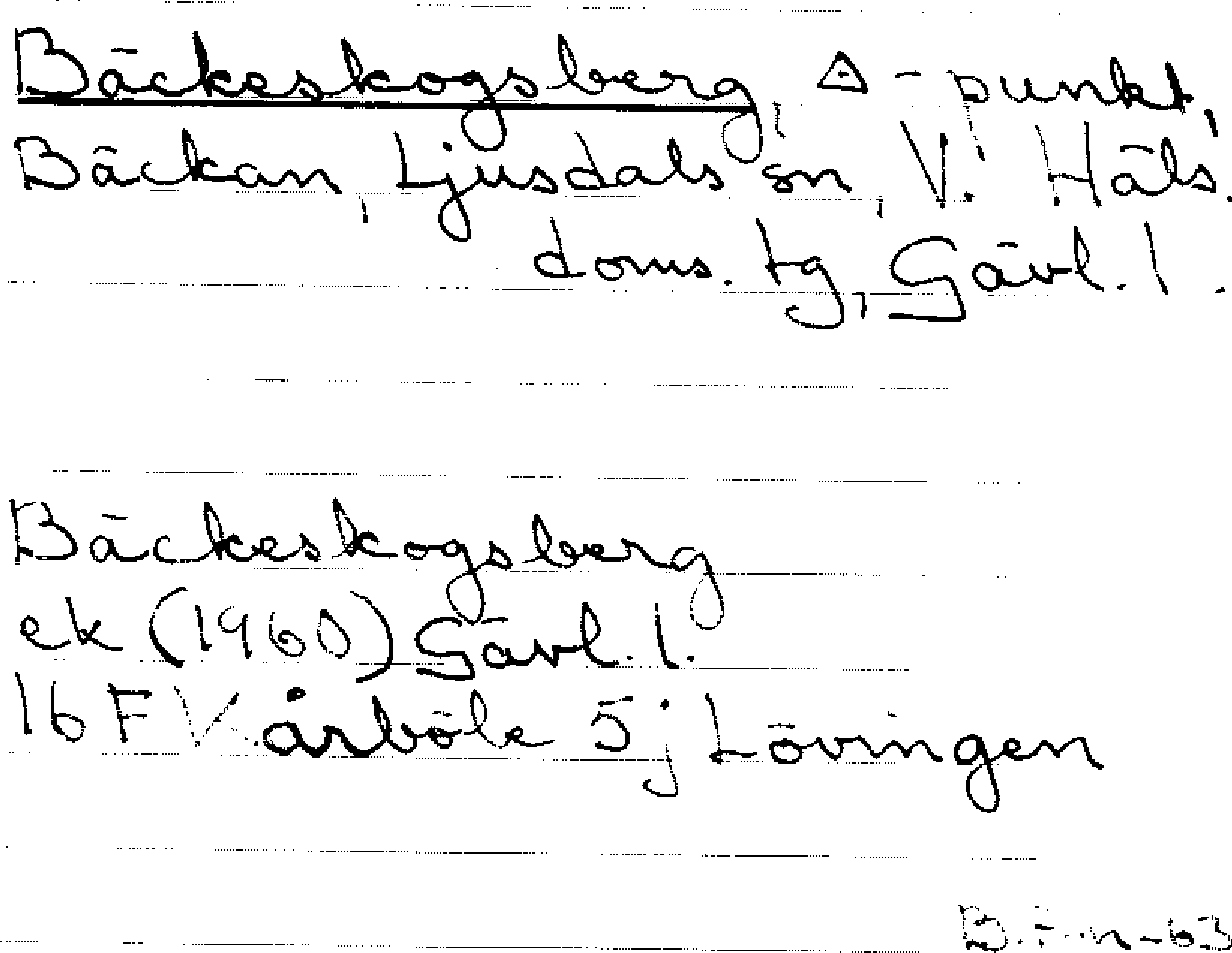 Bäckeskogsberg, △-punkt,
Bäckan, Ljusdals sn, V. Häls.
doms. tg, Gävl. l.
Bäckeskogsberg
ek (1960) Gävl. l.
16 F V. årböle 5 j Lövingen